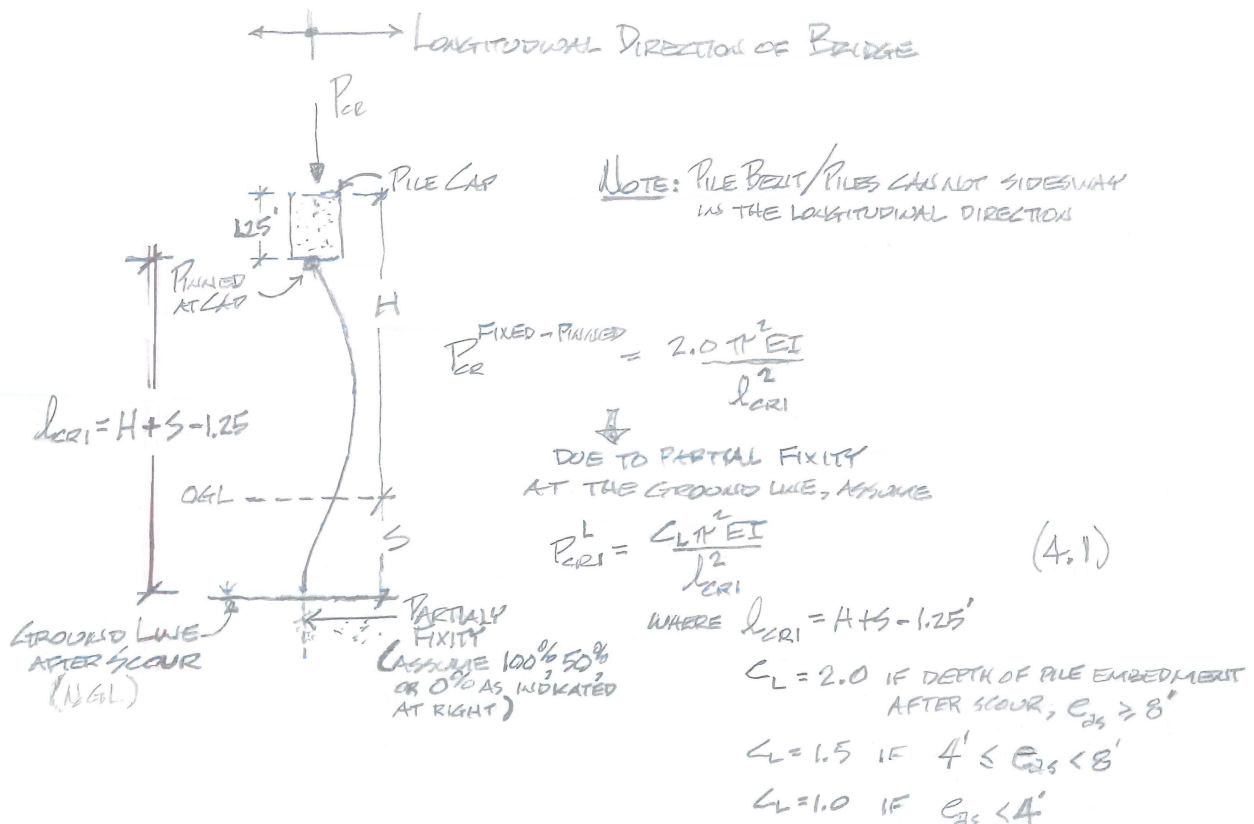 LONGITUDINAL DIRECTION OF BRIDGE
P_CR
PILE CAP
1.25'
PINNED
AT CAP
H
l_CR1 = H + S - 1.25
OGL
S
GROUND LINE
AFTER SCOUR
(NGL)
PARTIALY
FIXITY
(ASSUME 100%, 50%
OR 0% AS INDICATED
AT RIGHT)
NOTE: PILE BENT/PILES CANNOT SIDESWAY
IN THE LONGITUDINAL DIRECTION
P_CR^FIXED-PINNED = 2.0 π² EI / l²_CR1
DUE TO PARTIAL FIXITY
AT THE GROUND LINE, ASSUME
P^L_CR1 = C_L π² EI / l²_CR1 (4.1)
WHERE l_CR1 = H + S - 1.25'
C_L = 2.0 IF DEPTH OF PILE EMBEDMENT
AFTER SCOUR, e_as ≥ 8'
C_L = 1.5 IF 4' ≤ e_as < 8'
C_L = 1.0 IF e_as < 4'